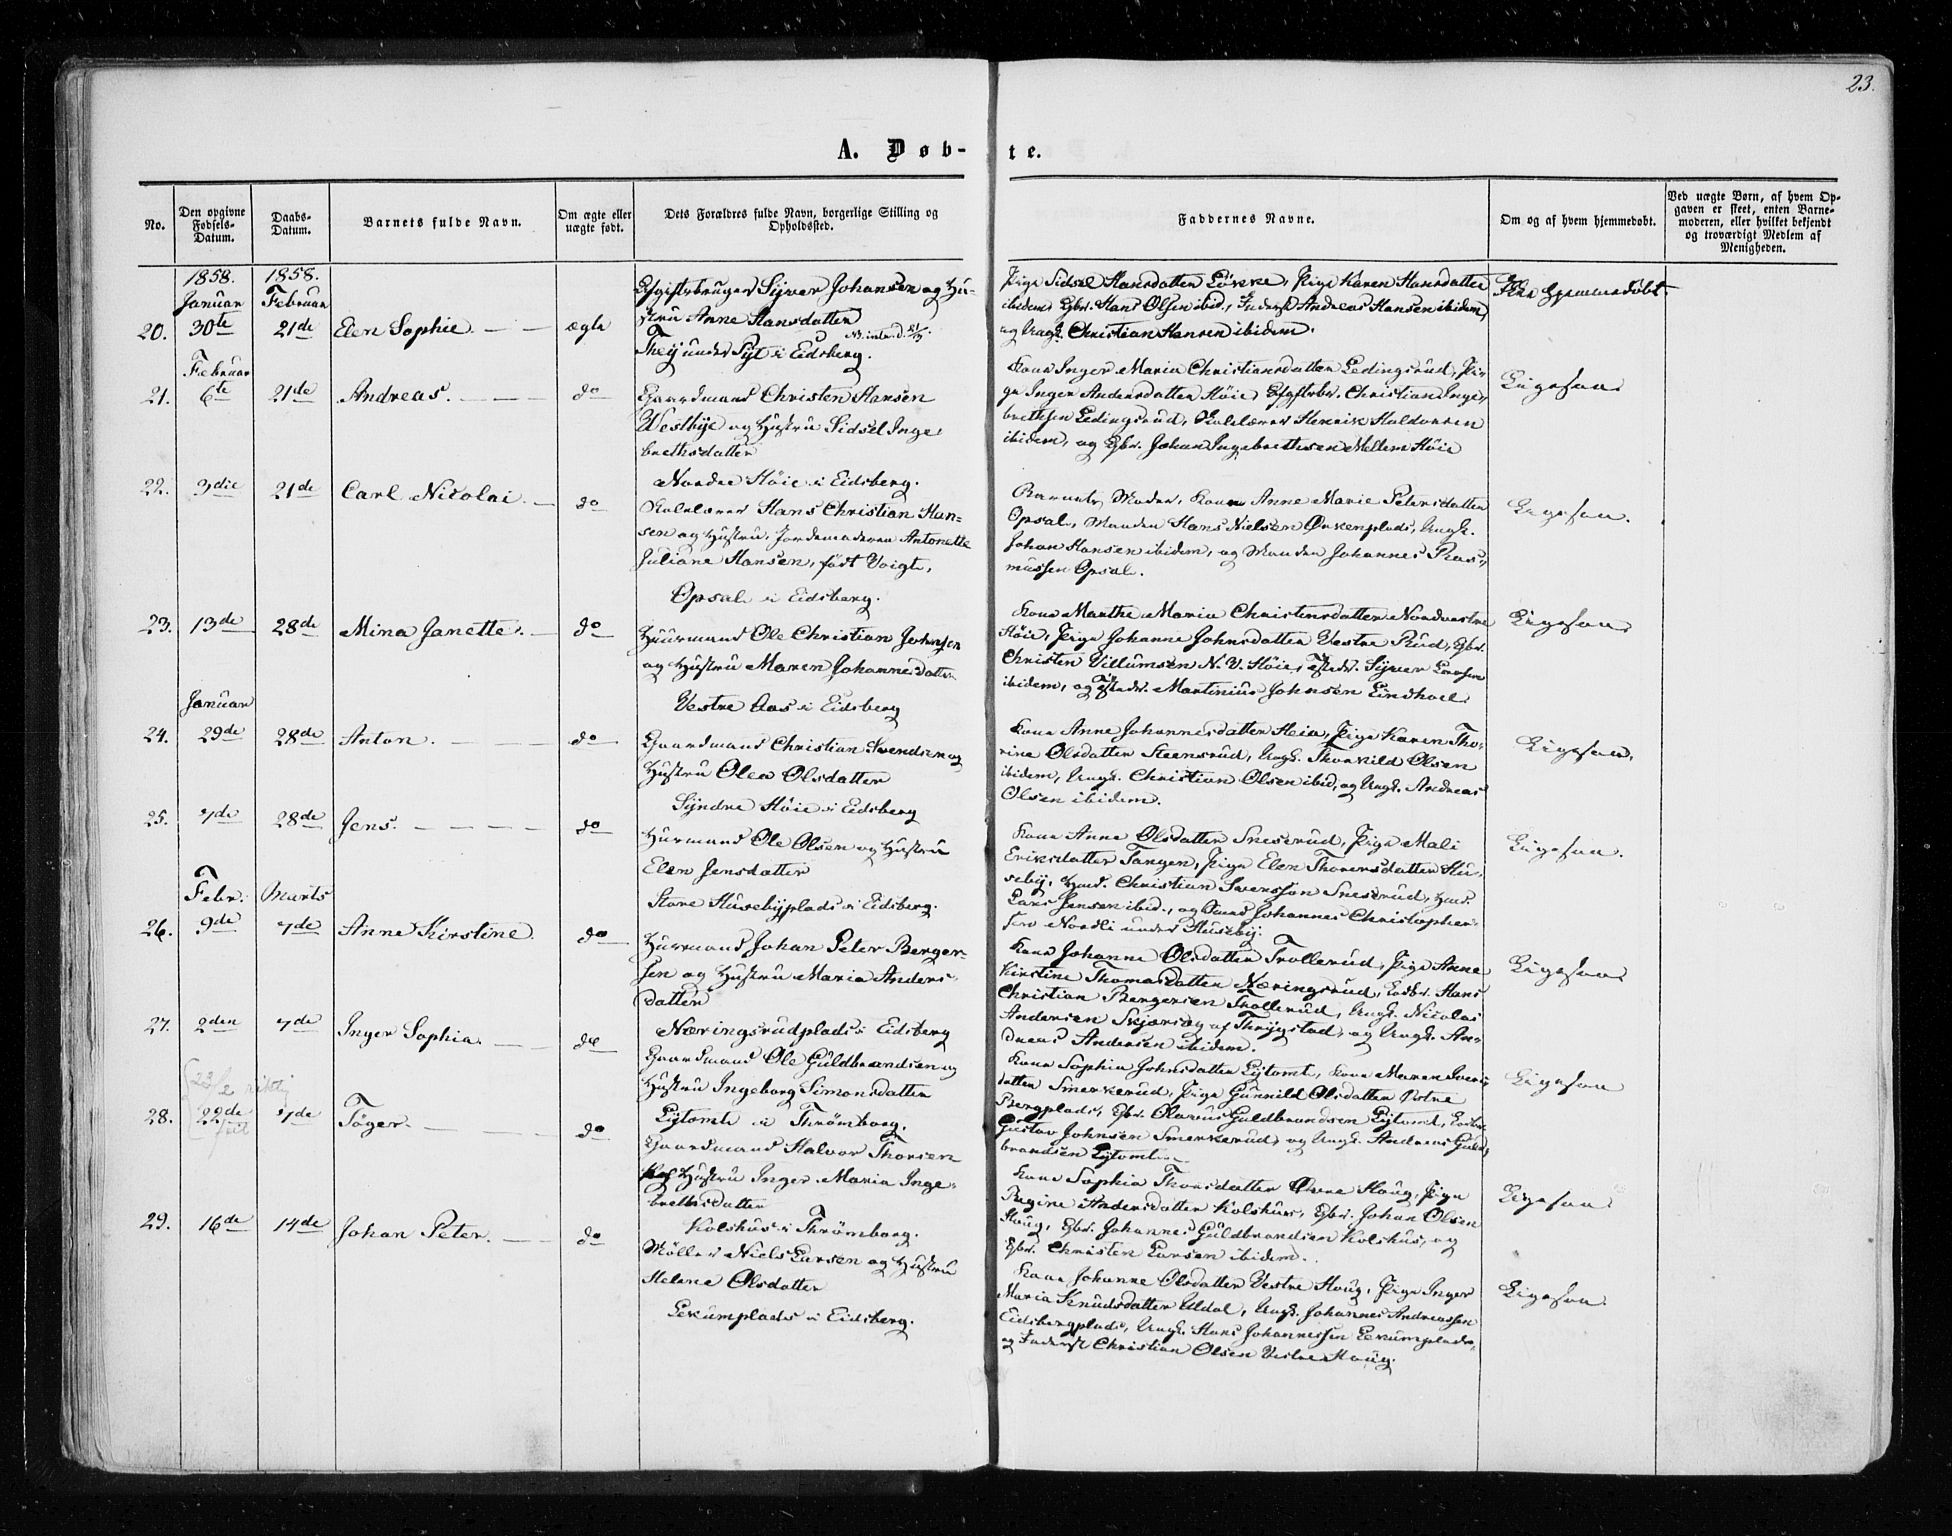 23.
A. Døb- te.
No.
Den opgivne Fødsels-Datum.
Daabs-Datum.
Barnets fulde Navn.
Om ægte eller uægte født.
Dets Forældres fulde Navn, borgerlige Stilling og Opholdssted.
Faddernes Navne.
Om og af hvem hjemmedøbt.
Ved uægte Børn, af hvem Opgaven er skeet, enten Barnemoderen, eller hvilket bekjendt og troværdigt Medlem af Menigheden.
1858. 1858.
Januar Februar
20. 30te 21de Elen Sophie. ægte
Sÿver Johansen og Hu-
stru Anne Hansdatter
i Eidsberg.
Pige Sidsel Hansdatter Løkke, Pige Karen Hansdatter
ibidem, Gbr. Hans Olsen ibid., Andreas Hansen ibidem,
og Ungk. Christian Hansen ibidem.
Ikke hjemmedøbt
Februar
21. 6te 21de Andreas. do
Gaardmand Christen Hansen
Westbye og Hustru Sidsel Inge-
brethsdatter
Nordre Høie i Eidsberg.
Kone Inger Maria Christiansdatter Ledingsrud, Pi-
ge Inger Andersdatter Høie, Christian Inge-
brethsen Ledingsrud, Skolelærer Henrik Haldorsen
ibidem, og Gbr. Johan Ingebrethsen Mellem Høie
Ligesaa
22. 3die 21de Carl Nicolai. do
Skolelærer Hans Christian Han-
sen og Hustru, Jordemoderen Antonette
Juliane Hansen, født Voigt,
Opsal i Eidsberg.
Barnets Moder, Kone Anne Marie Petersdatter
Opsal, Manden Hans Nielsen Ørkenplads, Ungk.
Johan Hansen ibidem, og Manden Johannes Ras-
mussen Opsal.
Ligesaa.
23. 13de 28de Mina Janette. do
Huusmand Ole Christian Johnsen
og Hustru Maren Johannesdatter
Vestre Aas i Eidsberg
Kone Marthe Maria Christensdatter Nordvestre
Høie, Pige Johanne Johnsdatter Vestre Rud, Gbr.
Christen Villumsen N. V. Høie, Sÿver Larsen
ibidem, og Martinius Johnsen Lindhoel
Ligesaa
Januar
24. 29de 28de Anton. do
Gaardmand Christian Svendsen og
Hustru Olea Olsdatter
Sÿndre Høie i Eidsberg
Kone Anne Johannesdatter Heia, Pige Karen Tho-
rine Olsdatter Steensrud, Ungk. Thorkild Olsen
ibidem, Ungk. Christian Olsen ibid, og Ungk. Andreas
Olsen ibidem.
Ligesaa.
25. 7de 28de Jens. do
Huusmand Ole Olsen og Hustru
Elen Jensdatter
Store Husebÿplads i Eidsberg.
Kone Anne Olsdatter Sneserud, Pige Mali
Eriksdatter Tangen, Pige Elen Thorersdatter Hu-
sebÿ, Christian Svensson Sneserud,
Lars Jensen ibid., og Johannes Christopher-
sen Nordli under Husebÿ.
Ligesaa.
Febr. Marts
26. 9de 7de Anne Kirstine. do
Huusmand Johan Peter Berger-
sen og Hustru Maria Anders-
datter
Næringsrudplads i Eidsberg
Kone Johanne Olsdatter Trollerud, Pige Anne
Kirstine Thomasdatter Næringsrud, Hans
Christian Bergersen Trollerud, Ungk. Nicolai
Andersen Skjørsag af Thrÿgstad, og Ungk. An-
dreas Andersen ibidem.
Ligesaa
27. 2den 7de Inger Sophia. do
Gaardmand Ole Guldbrandsen og
Hustru Ingeborg Simonsdatter
Lÿtomt i Thrømborg.
Kone Sophia Johnsdatter Lÿtomt, Kone Maren Iver-
datter Smerkerud, Pige Gunnild Olsdatter
Bergplads, Gbr. Olavus Guldbrandsen Lÿtomt,
Gustav Johnsen Smerkerud, og Ungk. Andreas Guld-
brandsen Lÿtomt.
Ligesaa
28. 22de 7de Tøger. do
Gaardmand Halvor Thorsen
og Hustru Inger Maria Inge-
brethsdatter
Kolshus i Thrømborg.
Kone Sophia Thorsdatter Øvre Haug, Pige
Regine Andersdatter Kolshus, Gbr. Johan Olsen
Haug, Gbr. Johannes Guldbrandsen Kolshus, og
Gbr. Christen Larsen ibidem.
Ligesaa
29. 16de 14de Johan Peter. do
Møller Niels Larsen og Hustru
Helene Olsdatter
Lekumplads i Eidsberg.
Kone Johanne Olsdatter Vestre Haug, Pige Inger
Maria Knudsdatter Udal, Ungk. Johannes Andreassen
Eidsbergplads, Ungk. Hans Johannessen Lekumplads,
og Christian Olsen Vestre Haug.
Ligesaa.